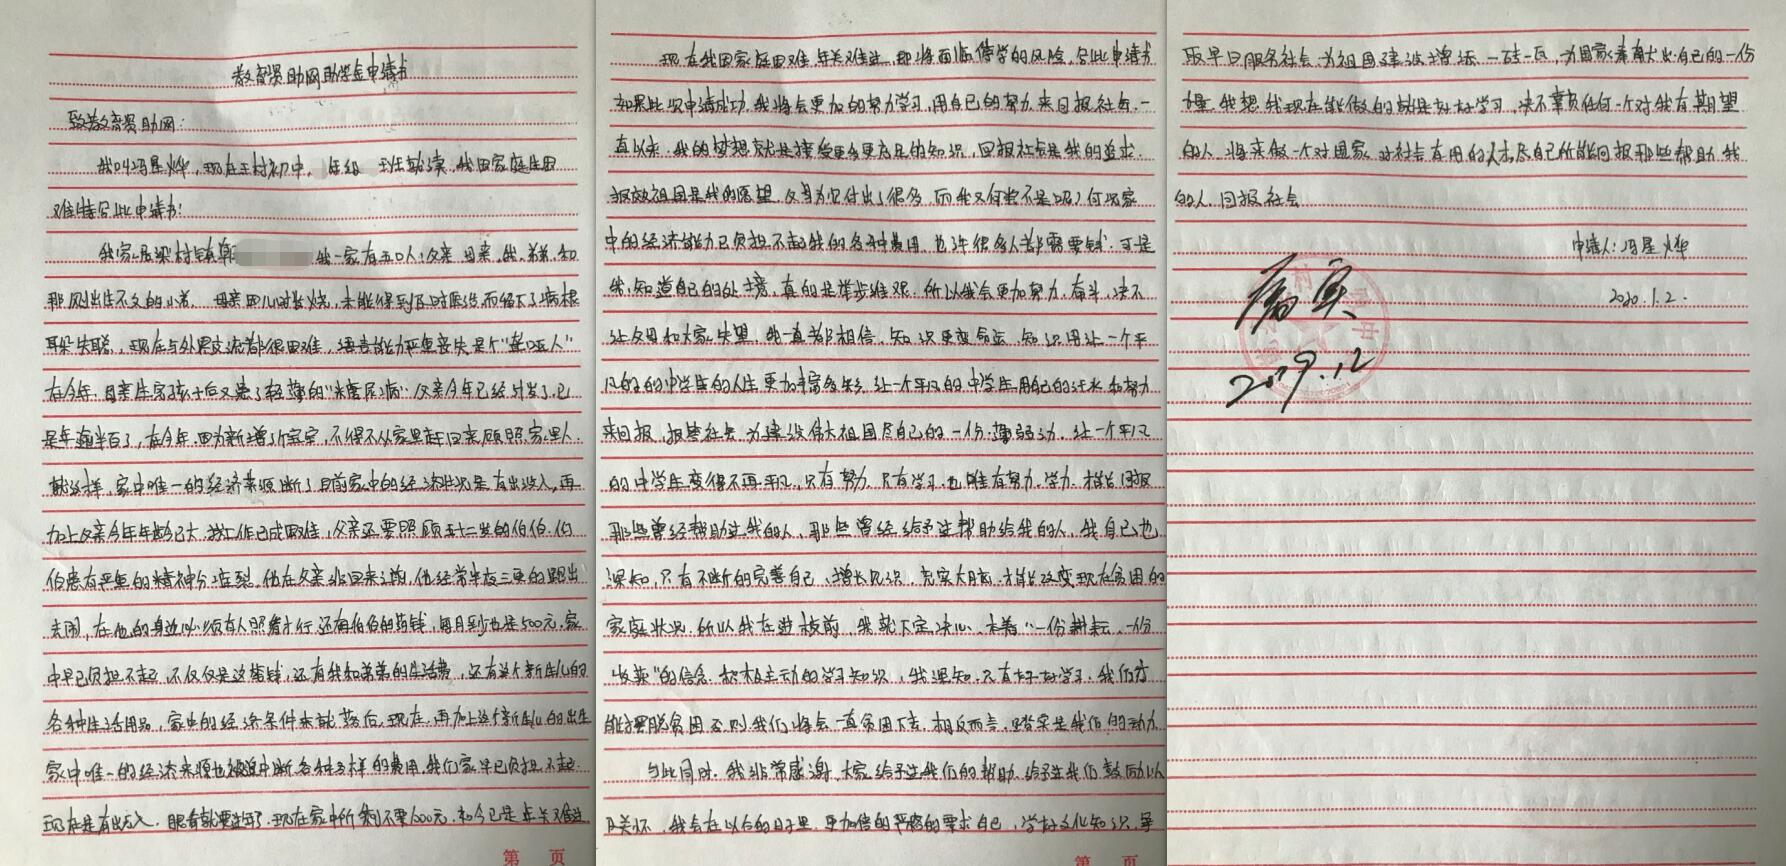 教育资助网助学金申请书
致教育资助网:
我叫冯星烨,现在王村初中,年级 班就读,我因家庭生困
难特写此申请书!
我家居梁村镇郭 我一家有五口人:父亲 母亲、我、弟弟、和
那刚出生不久的小弟 母亲因儿时发烧,未能得到及时医治,而留下了病根
耳朵失聪,现在与外界交流都很困难,语言能力严重丧失是个“聋哑人”
在今年,母亲生完孩子后又患了轻薄的“糖尿病”父亲今年已经 了,已
是年逾半百了,在今年因为新增了个宝宝,不得不从家里赶回来顾照家里人.
就这样,家中唯一的经济来源断了目前家中的经济状况是有出没入,再
加上父亲今年年龄已大,找工作已成困难,父亲还要照顾五十二岁的伯伯.伯
伯患有严重的精神分裂.他在父亲没回来之前,他经常半夜三更的跑出
去闹,在他的身边必须有人照看才行,还有伯伯的药钱,每月到少也是500元,家
中早已负担不起,不仅仅是这药钱,还有我和弟弟的生活费,还有这个新生儿的
各种生活用品,家中的经济条件本就落后,现在,再加上这个新生儿的出生
家中唯一的经济来源也被迫中断,各种各样的费用,我们家早已负担不起.
现在是有出无入,眼看就要过年了.现在家中所剩不要1000元,如今已是年关难过
现在我因家庭困难,年关难过,即将面临停学的风险,写此申请书
如果此次申请成功,我将会更加的努力学习,用自己的努力,来回报社会,一
直以来,我的梦想就是接受更多更充足的知识,回报社会是我的追求.
报效祖国是我的愿望,父母为它付出了很多,而我又何尝不是呢?何况家
中的经济能力已负担不起我的各种费用,也许很多人都需要钱,可是
我,知道自己的处境,真的是举步维艰,所以我会更加努力,奋斗,决不
让父母和大家失望,我一直都相信,知识更变命运,知识用让一个平
凡的的中学生的人生更加丰富多彩,让一个平凡的中学生用自己的汗水和努力
来回报,报答社会,为建设伟大祖国尽自己的一份薄弱力,让一个平凡
的中学生变得不再平凡,只有努力,只有学习,也唯有努力,学力,才能回报
那些曾经帮助过我的人,那些曾经给予过帮助给我的人,我自己也
深知,只有不断的完善自己,增长见识,充实大脑,才能改变现在贫困的
家庭状况,所以我在进校前,我就下定决心,本着“一份耕耘,一份
收获”的信念,积极主动的学习知识,我深知,只有好好学习,我们才
能摆脱贫困,否则我们将会一直贫困下去,相反而言,踏实是我们的动力.
与此同时,我非常感谢,大家给予过我们的帮助,给予过我们鼓励以
及关怀,我会在以后的日子里,更加倍的严格的要求自己,学好文化知识,争
取早日服务社会,为祖国建设增添一砖一瓦,为国家奉献出自己的一份
力量,我想,我现在能做的就是好好学习,决不辜负任何一个对我有期望
的人,将来做一个对国家,对社会有用的人才,尽自己所能回报那些帮助我
的人,回报社会
申请人:冯星烨
2020.1.2.
属实
2019.12
第 页
第 页